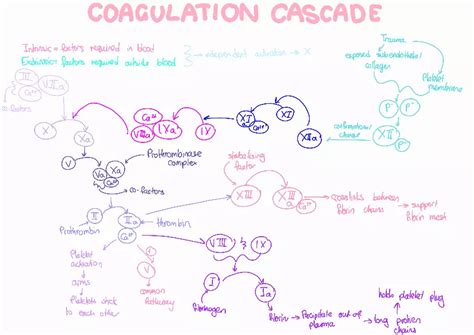 COAGULATION CASCADE
Intrinsic factors required in blood
Extrinsic factors required outside blood
→ independent activation → X
Trauma
exposed subendothelial
collagen
Platelet
membrane
P⁻
P⁻
XII
conformational
change
III
VIIa
Ca²⁺
co-factors
X
Xa
VIIIa
Ca²⁺
IXa
IX
XIa
Ca²⁺
XI
XII
XIIa
V
Va
Xa
Ca²⁺
Prothrombinase
complex
co-factors
stabilising
factor
XIII
XIIIa
Ca²⁺
crosslinks between
fibrin chains
→ support
fibrin mesh
II
IIa
Ca²⁺
Prothrombin
thrombin
VIII
IX
Platelet
activation
arms
Platelets stick
to each other
V
common
pathway
I
Ia
fibrinogen
fibrin → Precipitate out of
plasma
→ long protein
chains
holds platelet plug